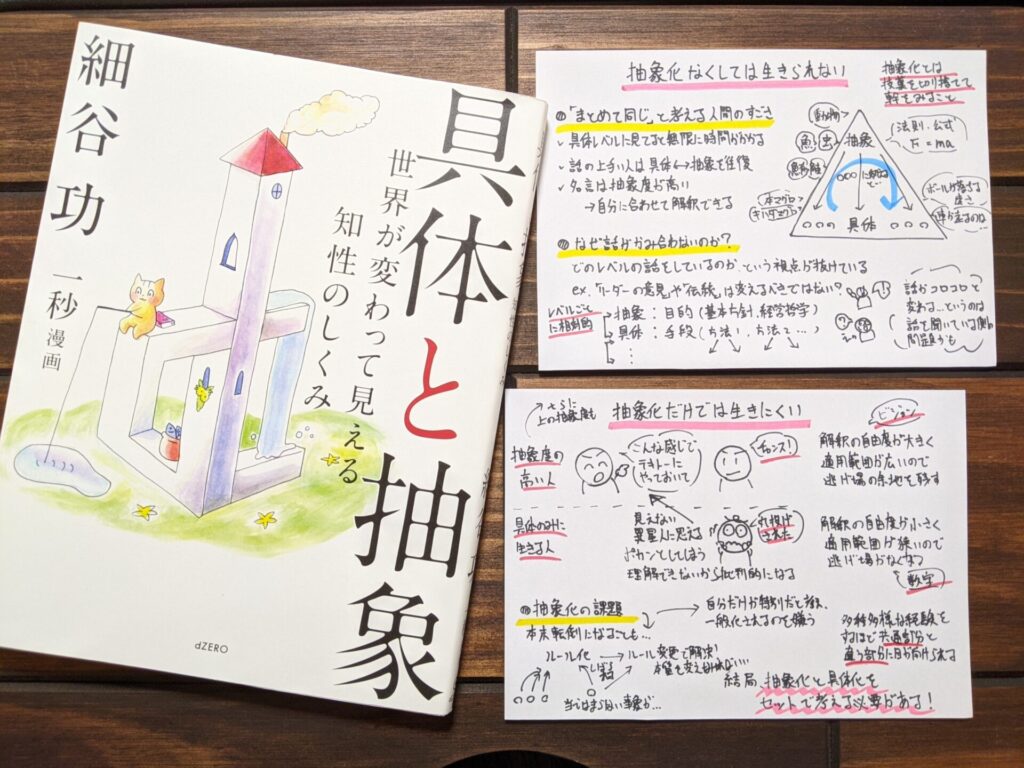 細谷功
一秒 漫画
具体と抽象
世界が変わって見える
知性のしくみ
dZERO
抽象化なくしては生きられない
抽象化とは
枝葉を切り捨てて
幹をみること
「まとめて同じ」と考える人間のすごさ
具体レベルに見てると無限に時間がかかる
話の上手い人は具体↔抽象を往復
名言は抽象度が高い
→自分に合わせて解釈できる
動物
魚 虫
抽象
具体
法則・公式
F = ma
なぜ話がかみ合わないのか?
どのレベルの話をしているのか、という視点が抜けている
ex.「リーダーの意見」や「伝統」は変えるべきではない?
レベルごと
に相対的
抽象:目的(基本方針、経営哲学)
具体:手段(方法1、方法2…)
話がコロコロと
変わる…というのは
話を聞いている側の
問題かも
さらに
上の抽象度も
抽象化だけでは生きにくい
抽象度の
高い人
こんな感じで
テキトーに
やっておいて
チャンス!
ビジョン
解釈の自由度が大きく
適用範囲が広いので
逃げ場の余地を残す
具体のみに
生きる人
見えない
異星人に思える
ポカンとしてしまう
理解できないから批判的になる
丸投げ
された
解釈の自由度が小さく
適用範囲が狭いので
逃げ場がなくなる
数字
抽象化の課題
本末転倒になることも…
自分だけが特別だと考え、
一般化されるのを嫌う
ルール化
ルール変更で解決!
当てはまらない事象が…
多種多様な経験を
すほど共通部分と
違う部分に目が向けられる
結局、抽象化と具体化を
セットで考える必要がある!